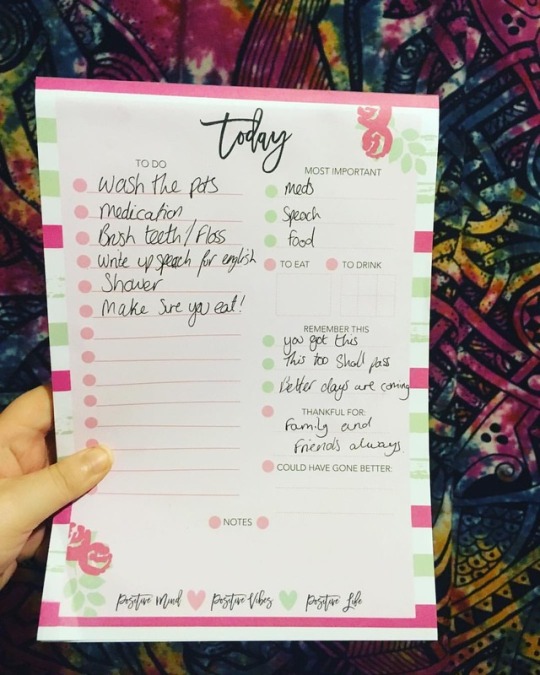 today
TO DO
Wash the pots
Medication
Brush teeth/Floss
Write up speach for english
Shower
Make Sure you eat!
MOST IMPORTANT
Meds
Speach
Food
TO EAT
TO DRINK
REMEMBER THIS
you got this
This too Shall pass
Better days are coming
THANKFUL FOR:
Family and
Friends always.
COULD HAVE GONE BETTER:
NOTES
Positive Mind Positive Vibes Positive Life